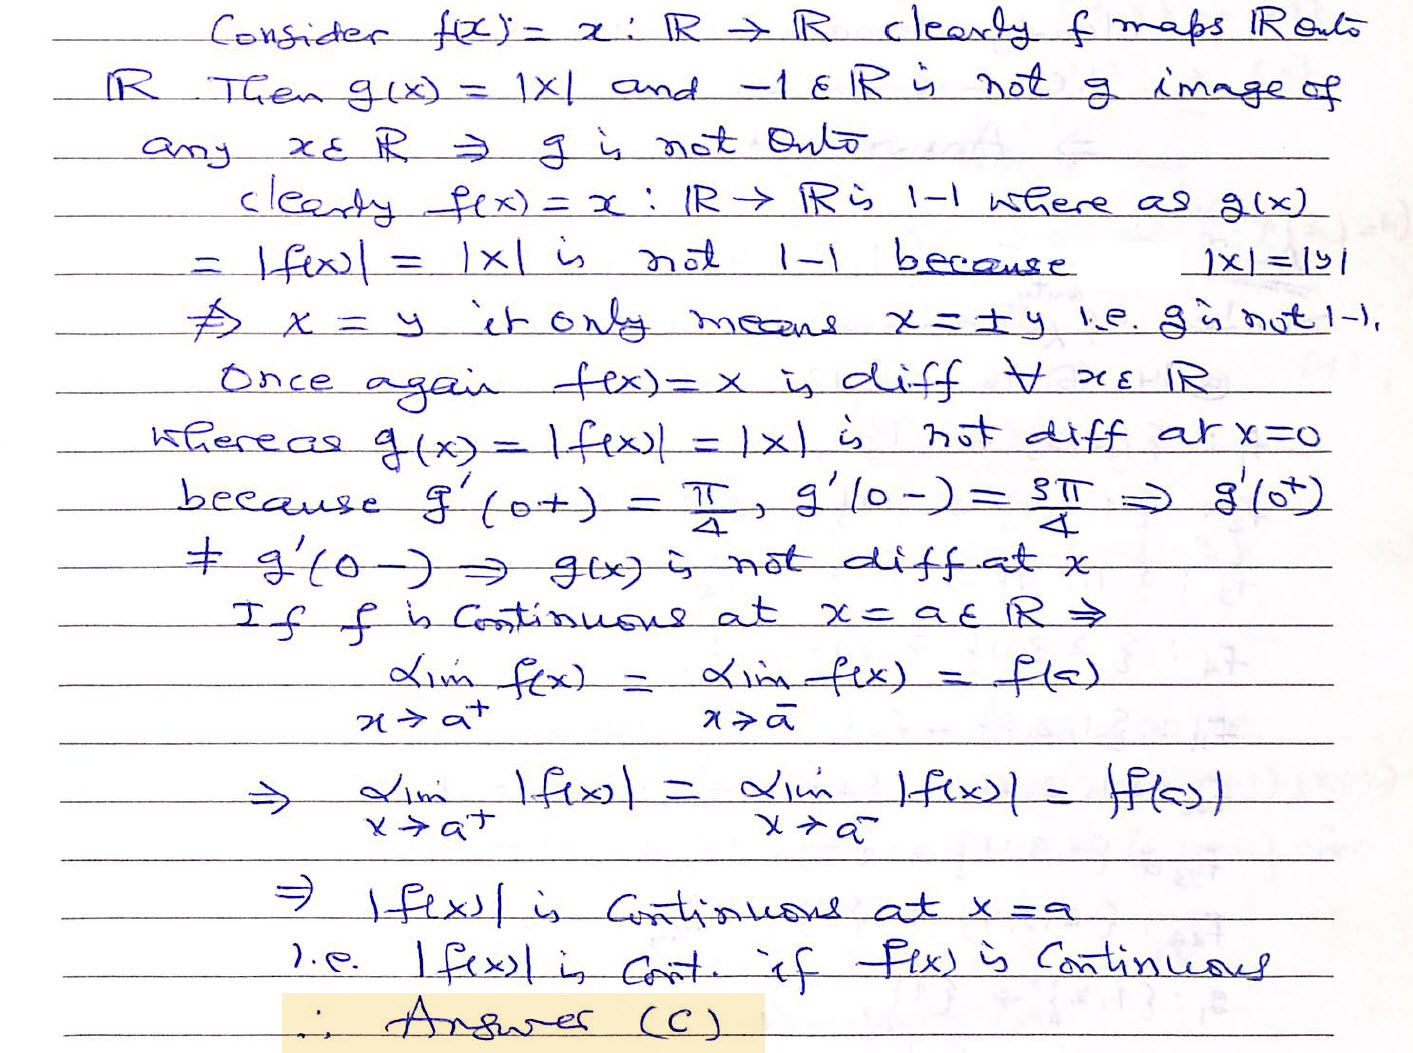 Consider f(x) = x : ℝ → ℝ clearly f maps ℝ onto
ℝ Then g(x) = |x| and -1 ε ℝ is not g image of
any x ε ℝ ⇒ g is not Onto
clearly f(x) = x : ℝ → ℝ is 1-1 where as g(x)
= |f(x)| = |x| is not 1-1 because |x| = |y|
⇏ x = y it only means x = ±y i.e. g is not 1-1.
Once again f(x) = x is diff ∀ x ε ℝ
whereas g(x) = |f(x)| = |x| is not diff at x=0
because g'(0+) = π/4, g'(0-) = 3π/4 ⇒ g'(0+)
≠ g'(0-) ⇒ g(x) is not diff at x
If f is continuous at x = a ε ℝ ⇒
Lim f(x) = Lim f(x) = f(a)
x→a⁺ x→a⁻
⇒ Lim |f(x)| = Lim |f(x)| = |f(a)|
x→a⁺ x→a⁻
⇒ |f(x)| is continuous at x = a
i.e. |f(x)| is cont. if f(x) is continuous
∴ Answer (C)